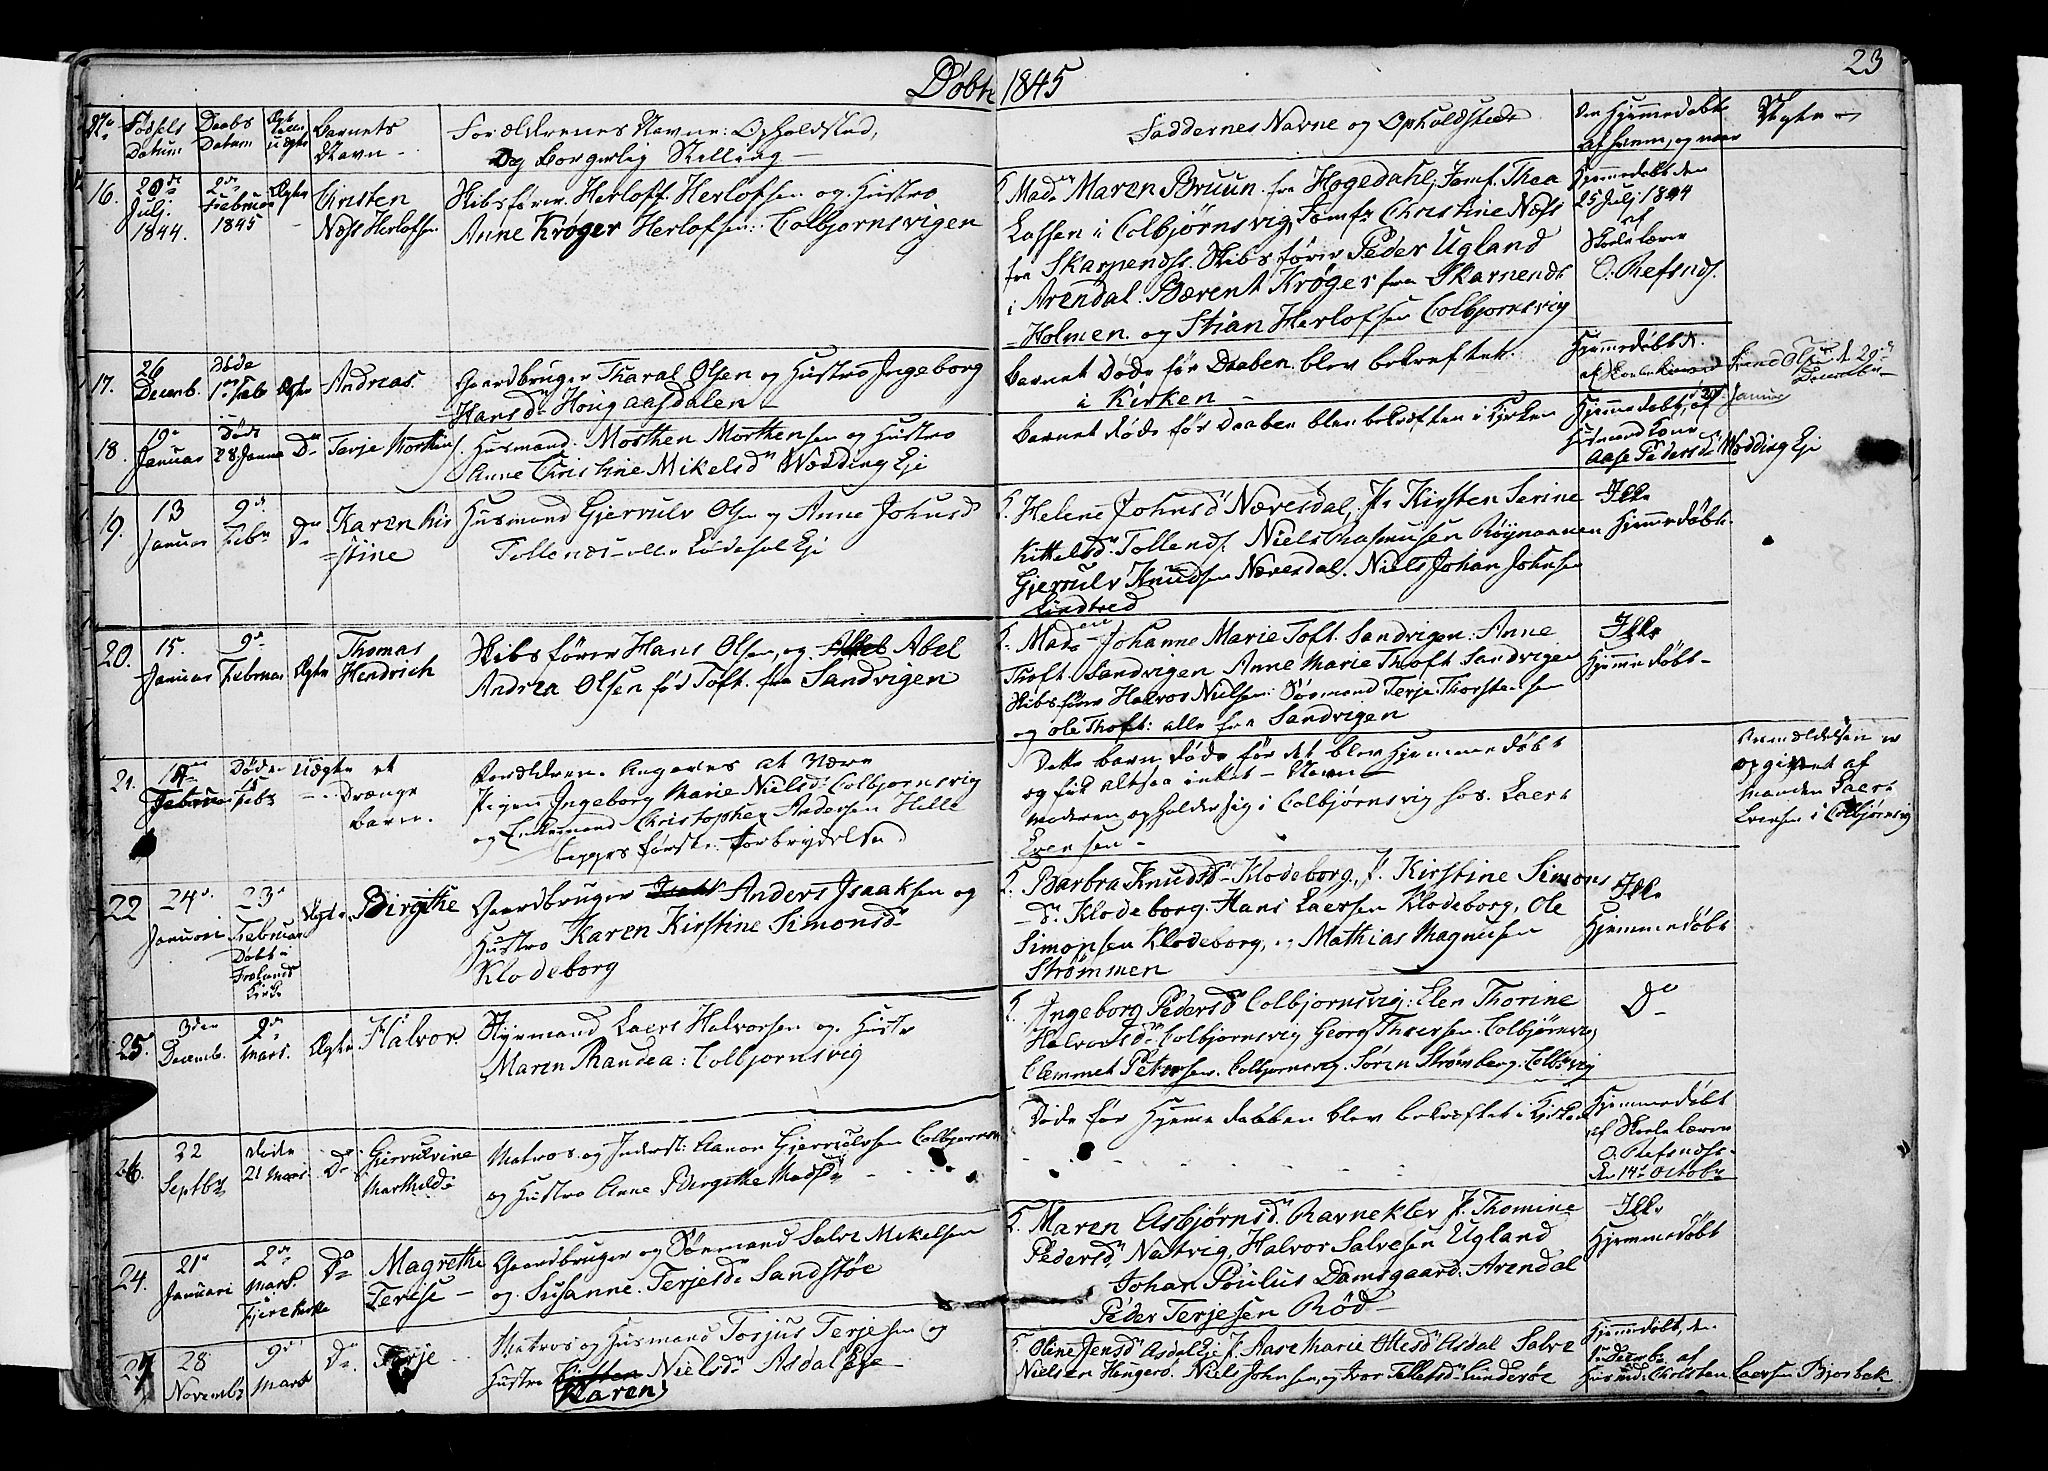 Døbte 1845
23
No
Fødsels Datum
Daabs Datum
Barnets Navn
Forældrenes Navne: Opholdsted,
Og Borgerlig Stilling
Faddernes Navne og Opholdsted
Om Hjemmedøbt
af hvem, og naar
16.
20de Juli 1844.
2den Februar 1845
Ægte
Næss Herlofsen
Skibsfører Herloff Herlofsen og Hustro
Anne Krøger Herlofsen: Colbjornsvigen
Mad. Maren Bruun fra Høgedahl, Jomf. Thea
Lassen i Colbjørnsvig, Jomfr Christine Næss
fra Skarpenæs. Skibsfører Peder Ugland
i Arendal. Bærent Krøger fra
Holmen. og Stian Herlofsen Colbjornsvig
Hjemmedøbt den
25 Juli 1844
af
Skolelærer
O. Refsnæs.
17.
26 Decemb.
Døde 1. Feb
Ægte
Andreas.
Gaardbruger Tharal Olsen og Hustro Ingeborg
Hansd. Hougaasdalen
Barnet Døde før Daaben blev bekreftet
i Kirken
Hjemmedøbt
18.
19 Januar
Døde 28 Janua
Do
Terje
Husmand Morthen Morthensen og Hustro
Anne Christine Mikelsd. Wædding Eje
Barnet døde før Daaben blev bekræften i Kirken
Hjemmedøbt, af
Husmand Kone
Aase Pedersd. Wædding Eje
19.
13 Januar
9d Febr
Do
Karen Kir
=stine
Husmand Gjerrulv Olsen og Anne Johnsd
Tollenæs
Helene Johnsd Næversdal, J. Kirsten Serine
Kittelsd. Tollends. Niels Rasmusen Røynaanen
Gjerrulv Knudsen Næversdal. Niels Johan Johnsen
Lindtved
Ikke
Hjemmedøbt.
20.
15. Januar
9de Februar
Ægte
Thomas
Hendrich
Skibsfører Hans Olsen, og Abel
Andrea Olsen fød Toft. fra Sandvigen
Mad. Johanne Marie Toft. Sandvigen: Anne
Thoft Sandvigen Anne Marie Thoft Sandvigen
Skibsfører Halvor Nielsen: Sømand Terje Thorstensen
og Ole Thoft: alle fra Sandvigen
Ikke
Hjemmedøbt
21.
Februar
Døde 15 Feb
Uægte
et
Drænge
barn.
Forældren. Angaves at være
Pigen Ingeborg Marie Nielsd. Colbjornsvig
og Enkemand Christopher Andersen Helle
begges første Forbrydelse.
Dette barn Døde før det blev Hjemmedøbt
og fik altsaa intet Navn
Moderen opholder sig i Colbjørnsvig hos Laers
Evensen
Anmeldelsen er
opgivet af
Manden Laers
Evensen i Colbjørnsvig
22
24d Januari
23d Februar
Døbt i
Frolands
Kirke
Ægte
Birgitte
Gaardbruger Anders Isaaksen og
Hustro Karen Kirstine Simonsd
Klodeborg
Barbra Knudsd. Klodeborg, J. Kirstine Simons
D. Klodeborg. Hans Laersen Klodeborg, Ole
Simonsen Klodeborg, Mathias Magnusen
Strømmen
Ikke
Hjemmedøbt
25.
3den Decemb.
2den Mars.
Ægte
Halvor
Styrmand Laers Halvorsen og Hustr
Maren Randea: Colbjornsvig
Ingeborg Pedersd Colbjornsvig: Elen Thorine
Halvorsd. Colbjornsvig Georg Colbjørnsvig
Clemmet Petersen. Colbjornsvig. Søren Strømberg. Colb.vig
Do
26.
22 Septbr
Døde 21 Mars
Do
Gjervulvine
Marthilde
Matros og Inderst: Aanon Gjerrulvsen Colbjornsv
og Hustro Anne Birgitte Madsd
Døde før Hjemmedaaben blev bekræftet i Kirken
Hjemmedøbt
af Skolelærer
O. Refsnds
den 14d Octobr
24.
21d Januari
2den Mars
Do
Magrethe
Terese
Gaardbruger og Sømand Salve Mikelsen
og Susanne Terjesd. Sandstøe
Maren Asbjørnsd. Ravneklev J. Thomine
Pedersd. Natvig, Halvor Salvesen Ugland
Johan Poulus Damsgaard. Arendal
Peder Terjesen Rød
Ikke
Hjemmedøbt
27
28 Novembr
9d Mars
Do
Terje
Matros og Husmand Torjus Terjesen og
Hustro Kirsten Nielsd. Asdal Eje
Karen
Oline Jensd Asdal Eje J. Aase Marie Ottesd Asdal Salve
Nielsen Niels Johnsen, og Ivar Tellefsd.
Hjemmedøbt, den
af
Christen Laersen Bjorbek